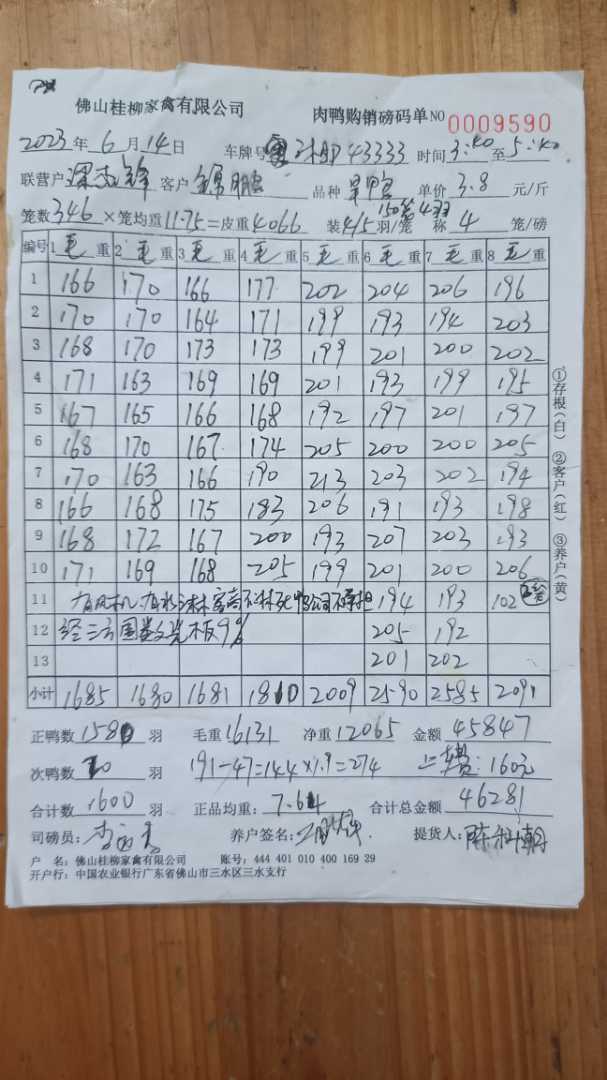 佛山桂柳家禽有限公司 肉鸭购销磅码单 NO 0009590
2023年6月14日 车牌号 43333 时间3:40至5:40
联营户 客户 品种 单价3.8元/斤
笼数346×笼均重11.75=皮重4066 装4/5羽/笼 称4笼/磅
编号 1毛重 2毛重 3毛重 4毛重 5毛重 6毛重 7毛重 8毛重
1 166 170 166 177 202 204 206 196
2 170 170 164 171 199 193 194 203
3 168 170 173 173 199 201 200 202
4 171 163 169 169 201 193 199 195
5 167 165 166 168 192 197 201 197
6 168 170 167 174 205 200 200 205
7 170 163 166 190 213 203 202 194
8 166 168 175 183 206 191 193 198
9 168 172 167 200 193 207 203 193
10 171 169 168 205 199 201 200 206
11 194 193 102
12 205 192
13 201 202
小计 1685 1680 1681 1810 2009 2590 2585 2091
正鸭数 羽 毛重16131 净重12065 金额45847
次鸭数 羽 191-47=144×1.9=274 160元
合计数1600羽 正品均重:7.64 合计总金额46281
司磅员: 养户签名: 提货人:
户 名:佛山桂柳家禽有限公司 账号:444 401 010 400 169 29
开户行:中国农业银行广东省佛山市三水区三水支行
①存根(白) ②客户(红) ③养户(黄)